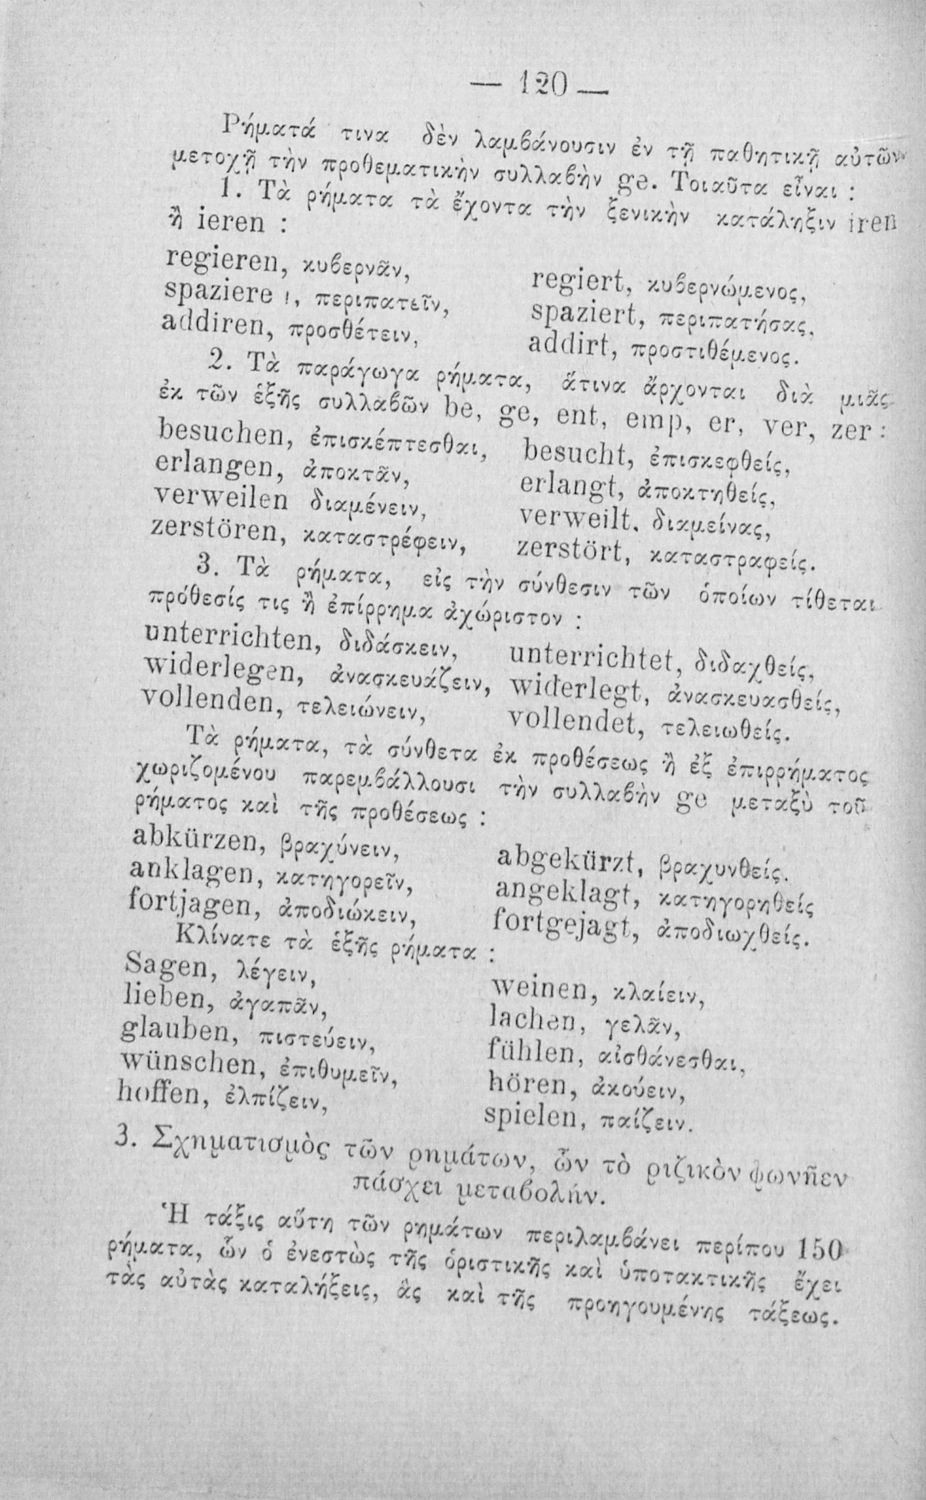 — 120 —
Ρήματά τινα δὲν λαμβάνουσιν ἐν τῇ παθητικῇ αὐτῶν
μετοχῇ τὴν προθεματικὴν συλλαβὴν ge. Τοιαῦτα εἶναι :
1. Τὰ ρήματα τὰ ἔχοντα τὴν ξενικὴν κατάληξιν iren
ἢ ieren :
regieren, κυβερνᾶν, regiert, κυβερνώμενος,
spaziere , περιπατεῖν, spaziert, περιπατήσας,
addiren, προσθέτειν, addirt, προστιθέμενος.
2. Τὰ παράγωγα ρήματα, ἅτινα ἄρχονται διὰ μιᾶς
ἐκ τῶν ἑξῆς συλλαβῶν be, ge, ent, emp, er, ver, zer :
besuchen, ἐπισκέπτεσθαι, besucht, ἐπισκεφθείς,
erlangen, ἀποκτᾶν, erlangt, ἀποκτηθείς,
verweilen διαμένειν, verweilt. διαμείνας,
zerstören, καταστρέφειν, zerstört, καταστραφείς.
3. Τὰ ρήματα, εἰς τὴν σύνθεσιν τῶν ὁποίων τίθεται
πρόθεσίς τις ἢ ἐπίρρημα ἀχώριστον :
unterrichten, διδάσκειν, unterrichtet, διδαχθείς,
widerlegen, ἀνασκευάζειν, widerlegt, ἀνασκευασθείς,
vollenden, τελειώνειν, vollendet, τελειωθείς.
Τὰ ρήματα, τὰ σύνθετα ἐκ προθέσεως ἢ ἐξ ἐπιρρήματος
χωριζομένου παρεμβάλλουσι τὴν συλλαβὴν ge μεταξὺ τοῦ
ρήματος καὶ τῆς προθέσεως :
abkürzen, βραχύνειν, abgekürzt, βραχυνθείς.
anklagen, κατηγορεῖν, angeklagt, κατηγορηθείς
fortjagen, ἀποδιώκειν, fortgejagt, ἀποδιωχθείς.
Κλίνατε τὰ ἑξῆς ρήματα :
Sagen, λέγειν, weinen, κλαίειν,
lieben, ἀγαπᾶν, lachen, γελᾶν,
glauben, πιστεύειν, fühlen, αἰσθάνεσθαι,
wünschen, ἐπιθυμεῖν, hören, ἀκούειν,
hoffen, ἐλπίζειν, spielen, παίζειν.
3. Σχηματισμὸς τῶν ρημάτων, ὧν τὸ ριζικὸν φωνῆεν
πάσχει μεταβολήν.
Ἡ τάξις αὕτη τῶν ρημάτων περιλαμβάνει περίπου 150
ρήματα, ὧν ὁ ἐνεστὼς τῆς ὁριστικῆς καὶ ὑποτακτικῆς ἔχει
τὰς αὐτὰς καταλήξεις, ἃς καὶ τῆς προηγουμένης τάξεως.